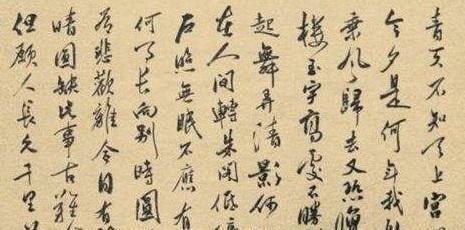 青天不知天上宮
今夕是何年我欲
乘風歸去又恐瓊
樓玉宇高處不勝
起舞弄清影何
在人間轉朱閣低綺
戶照無眠不應有
何事長向別時圓
有悲歡離合月有
晴圓缺此事古難
但願人長久千里